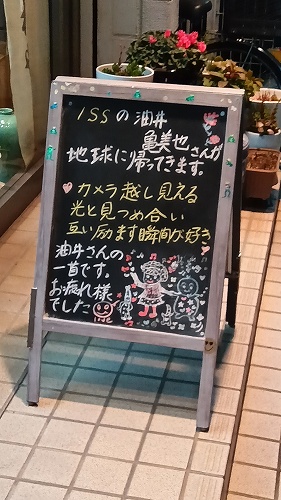 ISSの油井
亀美也さんが
地球に帰ってきます。
カメラ越し見える
光と見つめ合い
互い励ます瞬間が好き
油井さんの
一首です。
お疲れ様
でした